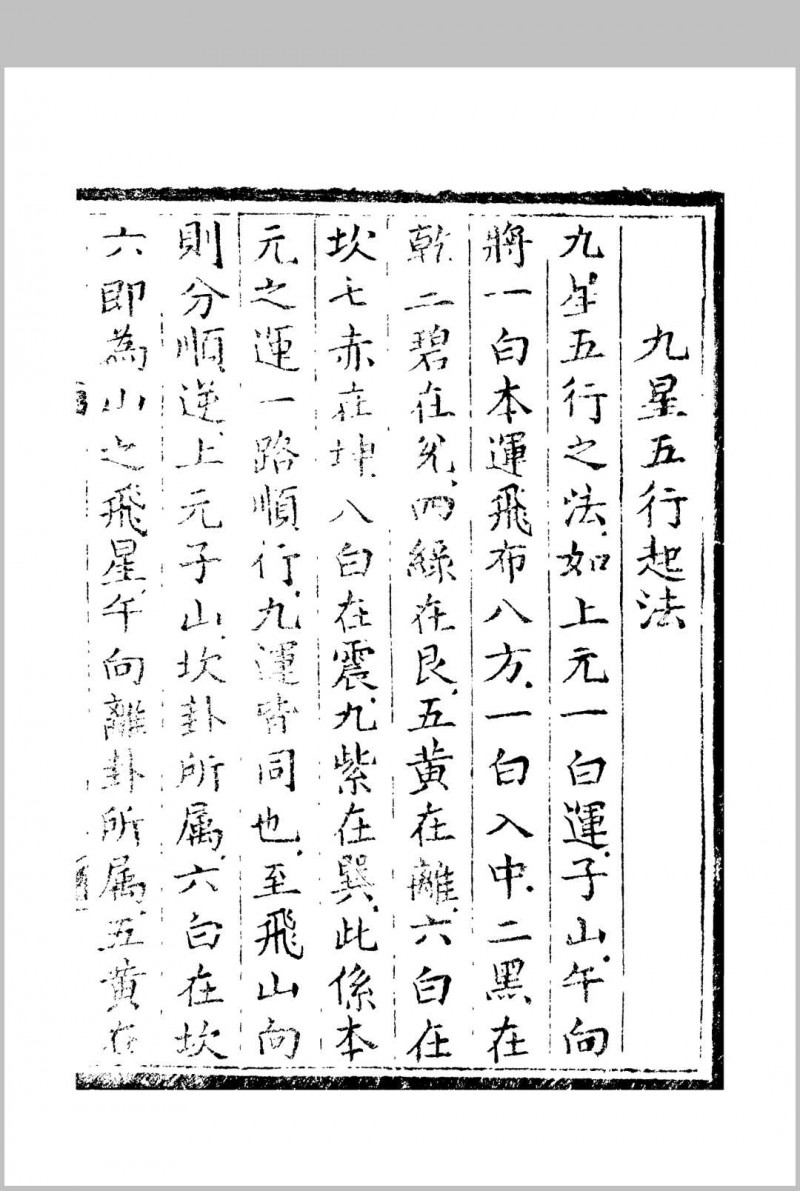 九星五行起法
九星五行之法如上元一白運子山午向
將一白本運飛布八方一白入中二黑在
乾二碧在兌四綠在艮五黃在離六白在
坎七赤在坤八白在震九紫在巽此係本
元之運一路順行九運皆同也至飛山向
則分順逆上元子山坎卦所属六白在坎
六即為山之飛星午向離卦所属五黃在